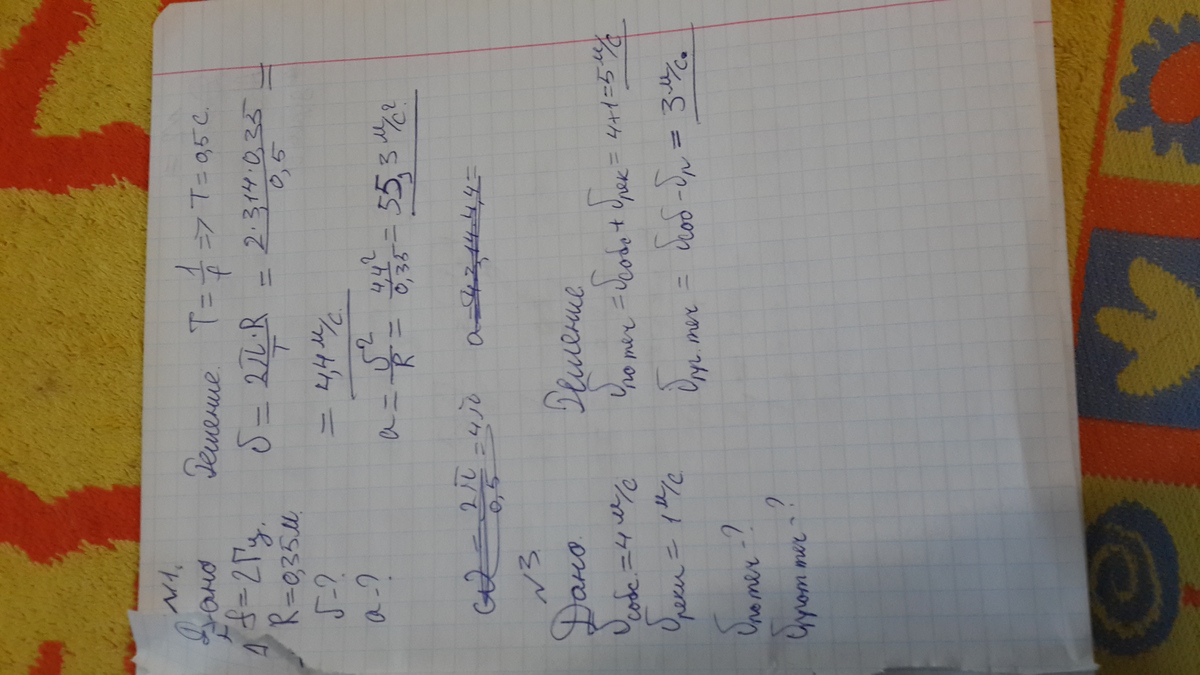 №1.
Дано
f = 2 Гц.
R = 0,35 м.
υ - ?
a - ?
Решение. T = 1/f => T = 0,5 с.
υ = 2π·R/T = 2·3,14·0,35/0,5 =
= 4,4 м/с.
a = υ²/R = 4,4²/0,35 = 55,3 м/с²
= 2π/0,5 = 4π
a = 4·3,14·4,4 =
№3
Дано.
υсобс. = 4 м/с
υреки = 1 м/с.
υпо теч - ?
υпрот теч - ?
Решение.
υпо теч = υсобс + υрек = 4+1 = 5 м/с
υпр. теч = υсоб - υр = 3 м/с.